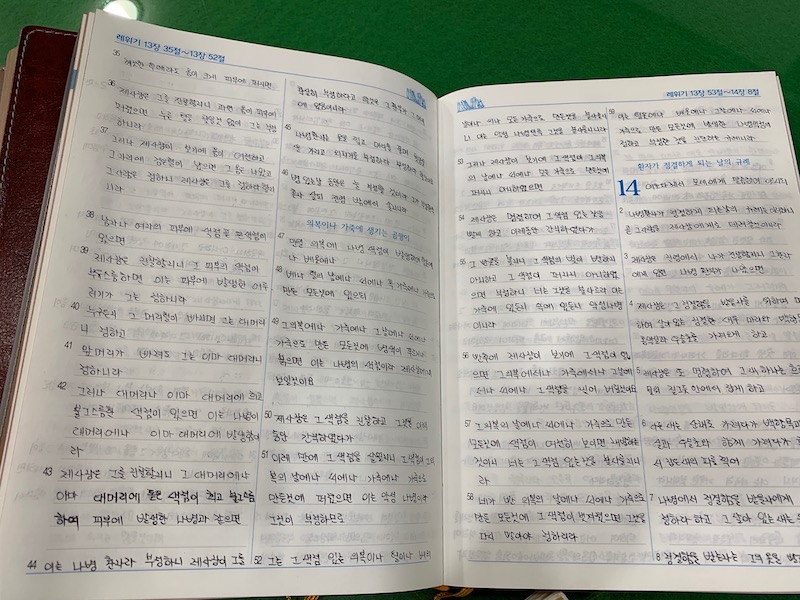 레위기 13장 35절~13장 52절
35 깨끗한 후에라도 옴이 크게 피부에 퍼지면
36 제사장은 그를 진찰할지니 과연 옴이 피부에
퍼졌으면 누른 털을 찾을것 없이 그는 부정
하니라
37 그러나 제사장이 보기에 옴이 여전하고
그 자리에 검은털이 났으면 그 옴은 나았고
그 사람은 정하니 제사장은 그를 정하다 할지
니라
38 남자나 여자의 피부에 색점 곧 흰색점이
있으면
39 제사장은 진찰할지니 그 피부의 색점이
부유스름하면 이는 피부에 발생한 어루
러기라 그는 정하니라
40 누구든지 그 머리털이 빠지면 그는 대머리
니 정하고
41 앞머리가 빠져도 그는 이마 대머리니
정하니라
42 그러나 대머리나 이마 대머리에 희고
불그스름한 색점이 있으면 이는 나병이
대머리에나 이마 대머리에 발생함이
라
43 제사장은 그를 진찰할지니 그 대머리에나
이마 대머리에 돋은 색점이 희고 불그스름
하여 피부에 발생한 나병과 같으면
44 이는 나병 환자라 부정하니 제사장이 그를
확실히 부정하다고 할것은 그 환부가 그 머리
에 있음이니라
45 나병환자는 옷을 찢고 머리를 풀며 윗입술
을 가리고 외치기를 부정하다 부정하다 할것이요
46 병 있는 날 동안은 늘 부정할 것이라
혼자 살되 진영 밖에서 살지니라
의복이나 가죽에 생기는 곰팡이
47 만일 의복에 나병 색점이 발생하여 털옷에
나 베옷에나
48 베나 털의 날에나 씨에나 혹 가죽에나 가죽으로
만든 모든것에 있으되
49 그 의복에나 가죽에나 그 날에나 씨에나
가죽으로 만든 모든것에 병색이 푸르거나
붉으면 이는 나병의 색점이라 제사장에게
보일것이요
50 제사장은 그 색점을 진찰하고 그것을 이레
동안 간직하였다가
51 이레 만에 그 색점을 살필지니 그 색점이 그 의
복의 날에나 씨에나 가죽에나 가죽으로
만든것에 퍼졌으면 이는 악성 나병이라
그것이 부정하므로
52 그는 그 색점 있는 의복이나 털이나 베의
레위기 13장 53절~14장 8절
날이나 씨나 모든 가죽으로 만든것을 불사를지
니 이는 악성 나병인즉 그것을 불사를지니라
53 그러나 제사장이 보기에 그 색점이 그 의복
의 날에나 씨에나 모든 가죽으로 만든것에
퍼지지 아니하였으면
54 제사장은 명령하여 그 색점 있는 것을
빨게 하고 이레동안 간직하였다가
55 그 빤곳을 볼지니 그 색점의 빛이 변하지
아니하고 그 색점이 퍼지지 아니하였
으면 부정하니 너는 그것을 불사르라 이는
가죽에 있든지 속에 있든지 악성나병
이니라
56 빤후에 제사장이 보기에 그 색점이 엷
으면 그 의복에서나 가죽에서나 그 날에
서나 씨에서나 그 색점을 찢어 버릴것이요
57 그 의복의 날에나 씨에나 가죽으로 만든
모든것에 색점이 여전히 보이면 재발하는
것이니 너는 그 색점 있는것을 불사를지니
라
58 네가 빤 의복의 날에나 씨에나 가죽으로
만든 모든것에 그 색점이 벗겨졌으면 그것을
다시 빨아야 정하리라
59 이는 털옷에나 베옷에나 그 날에나 씨에나
가죽으로 만든 모든것에 발생한 나병 색점의
정하고 부정한 것을 진단하는 규례니라
환자가 정결하게 되는 날의 규례
14 여호와께서 모세에게 말씀하여 이르시되
2 나병환자가 정결하게 되는날의 규례는 이러하니
곧 그 사람을 제사장에게로 데려갈것이요
3 제사장은 진영에서 나가 진찰할지니 그 환자
에게 있던 나병 환부가 나았으면
4 제사장은 그 정결함을 받을자를 위하여 명령
하여 살아있는 정결한 새 두 마리와 백향목과
홍색실과 우슬초를 가져오게 하고
5 제사장은 또 명령하여 그 새 하나는 흐르는
물 위 질그릇 안에서 잡게 하고
6 다른 새는 산채로 가져다가 백향목과
실과 우슬초와 함께 가져다가
서 잡은 새의 피를 찍어
7 나병에서 정결함을 받을자에게
정하다 하고 그 살아 있는 새는
8 정결함을 받는자는 그의 옷을 빨고